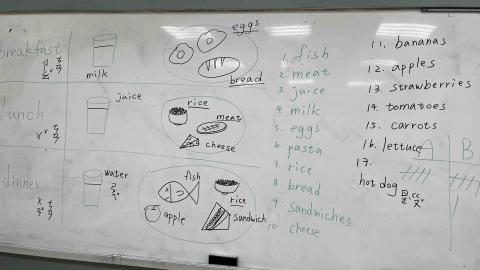 breakfast
milk
eggs
bread
lunch
juice
rice
meat
cheese
dinner
water
fish
rice
apple
sandwich
1. fish
2. meat
3. juice
4. milk
5. eggs
6. pasta
7. rice
8. bread
9. sandwiches
10. cheese
11. bananas
12. apples
13. strawberries
14. tomatoes
15. carrots
16. lettuce
17.
hot dog
A B